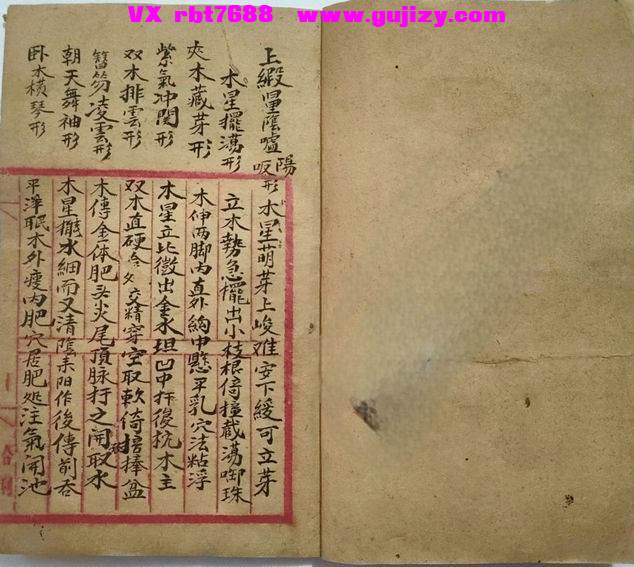 VX rbt7688 www.gujizy.com
上緞量陰嘘陽吸形
木星擺蕩形
夾木藏芽形
紫氣冲関形
双木排雲形
簪笏凌雲形
朝天舞袖形
卧木橫琴形
木星萌芽上峻难安下緩可立芽
立木勢急擺出小枝根倚撞截蕩啣珠
木伸两脚内直外鈎中懸平乳穴法粘浮
木星立比微出金水坦凹中扦後抗木主
双木直硬令交精穿空取軟倚掊捧盆
木傳金体肥头火尾頂脉打之開取水
木星擺水細而又清陰来阳作後傳前吞
平洋眠木外瘦内肥穴居肥処注氣開池